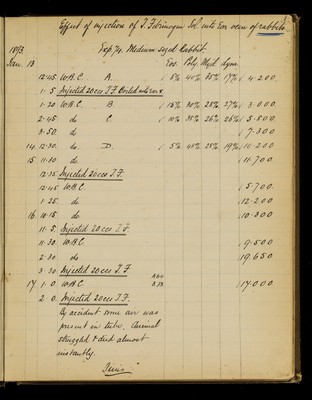 Effect of injection of T. Fibrinogen Sol. into Ear vein of rabbits.
1893 Exp 74. Medium sized Rabbit.
Jan. 13 Eos. Poly. Hyal. Lymp.
12.45 W.B.C. A. (8% 40% 35% 17%) 4.200
1.5 Injected 20ccs T.F.
1.20 W.B.C. B. (15% 30% 28% 27%) 3.000
2.45 do C (10% 38% 26% 26%) 5.800
3.50 do 7.300
14 12.30 do D. (5% 48% 28% 19%) 10.200
15 11.30 do 11.700
12.35 Injected 20ccs T.F.
12.45 W.B.C. 5.700
1.25 do 12.200
16 10.15 do 10.300
11.5 Injected 20ccs T.F.
11.30 W.B.C. 9.500
2.30 do 19.650
3.30 Injected 20ccs T.F.
17 1.0 W.B.C. 17.000
2.0 Injected 20ccs T.F.
By accident some air was
present in tube. Animal
struggled & died almost
instantly.
Finis